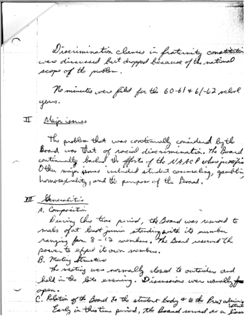 Discrimination clauses in fraternity constitutions
was discussed but dropped because of the national
scope of the problem.
No minutes were filed for the 60-61 & 61-62 school
years.
II Major issues
The problem that was continually considered by the
Board was that of social discrimination. The Board
continually backed the efforts of the NAACP
Other major issues included student counseling, gambling,
homosexuality, and the purpose of the Board.
III Generalities
A. Composition
During this time period, the Board was composed
males of at least junior standing with its number
ranging from 8-13 members. The Board reserved the
power to expel its own members.
B. Meeting Structure
The meeting was normally closed to outsiders and
held in the late evening. Discussions were usually
open.
C. Relation of the Board to the student body & to the Pres
Early in this time period, the Board served as a